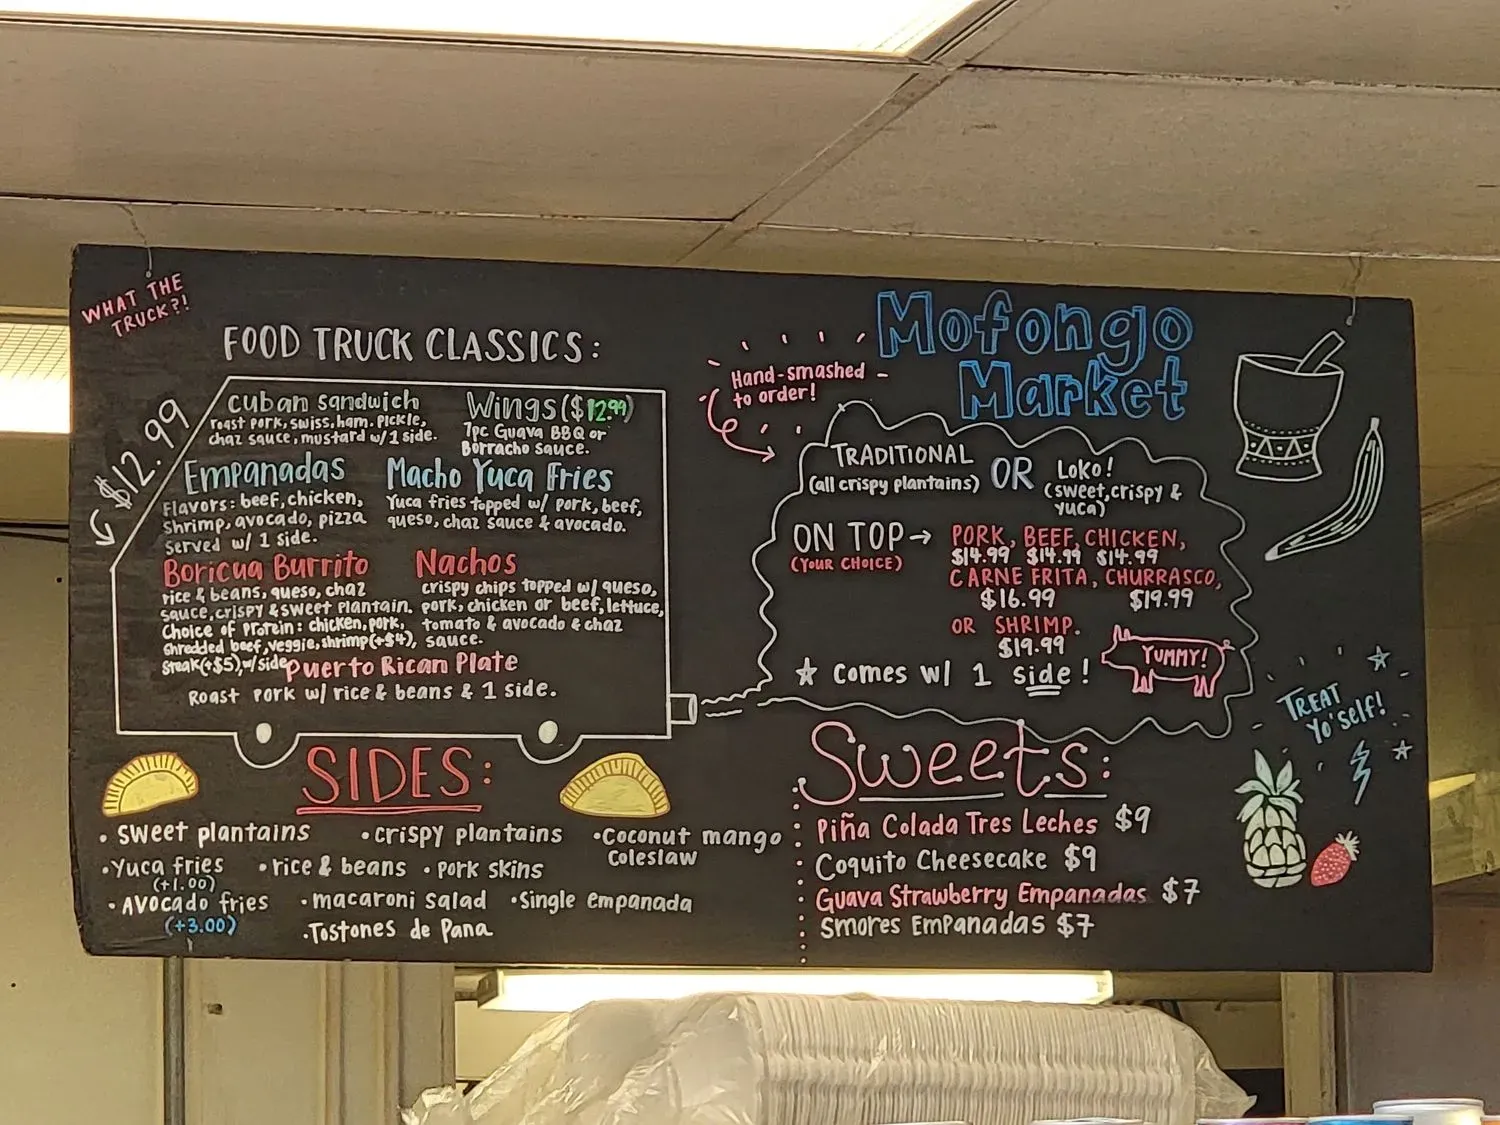 WHAT THE
TRUCK?!
FOOD TRUCK CLASSICS:
$12.99
Cuban Sandwich
roast pork, swiss, ham, pickle,
chaz sauce, mustard w/ 1 side.
Wings ($12.99)
7pc Guava BBQ or
Borracho sauce.
Empanadas
Flavors: beef, chicken,
shrimp, avocado, pizza
served w/ 1 side.
Macho Yuca Fries
Yuca fries topped w/ pork, beef,
queso, chaz sauce & avocado.
Boricua Burrito
rice & beans, queso, chaz
sauce, crispy & sweet plantain.
Choice of protein: chicken, pork,
shredded beef, veggie, shrimp(+$4),
steak(+$5), w/ side
Nachos
crispy chips topped w/ queso,
pork, chicken or beef, lettuce,
tomato & avocado & chaz
sauce.
Puerto Rican Plate
Roast pork w/ rice & beans & 1 side.
SIDES:
• sweet plantains • crispy plantains • Coconut mango
Coleslaw
• Yuca fries • rice & beans • pork skins
(+1.00)
• Avocado fries • macaroni salad • Single empanada
(+3.00)
• Tostones de Pana
Mofongo
Market
Hand-smashed
to order!
TRADITIONAL
(all crispy plantains)
OR
Loko!
(sweet, crispy &
yuca)
ON TOP →
(YOUR CHOICE)
PORK, BEEF, CHICKEN,
$14.99 $14.99 $14.99
CARNE FRITA, CHURRASCO,
$16.99 $19.99
OR SHRIMP.
$19.99
☆ Comes w/ 1 side!
YUMMY!
TREAT
Yo'self!
Sweets:
Piña Colada Tres Leches $9
Coquito Cheesecake $9
Guava Strawberry Empanadas $7
Smores Empanadas $7